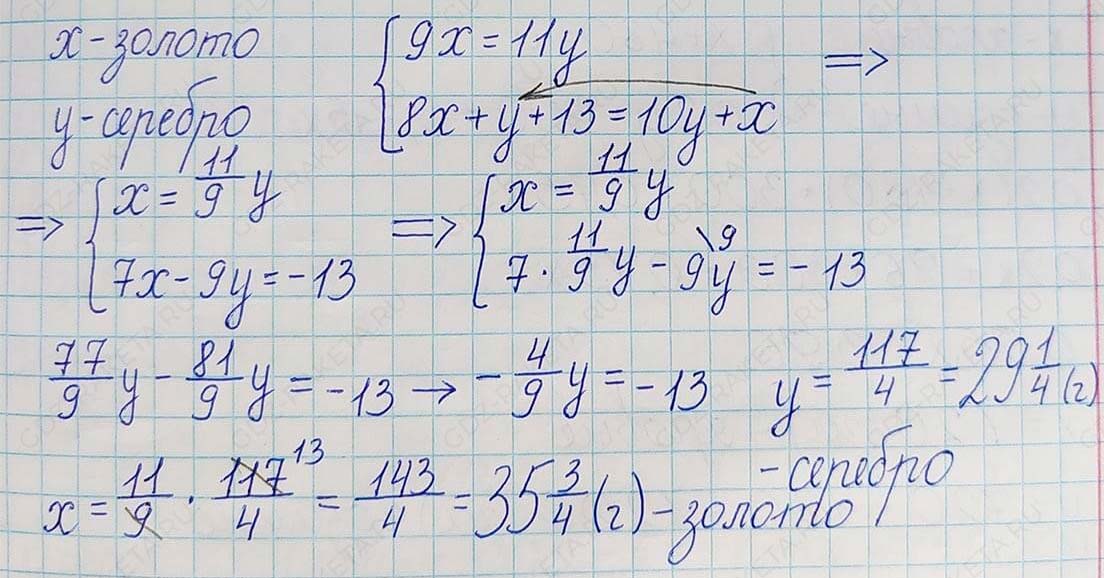 x - золото { 9x = 11y =>
y - серебро 8x + y + 13 = 10y + x
=> { x = 11/9 y => { x = 11/9 y
7x - 9y = -13 7 · 11/9 y - 9y \9 = -13
77/9 y - 81/9 y = -13 → - 4/9 y = -13 y = 117/4 = 29 1/4 (г)
- серебро
x = 11/9 · 117/4 13 = 143/4 = 35 3/4 (г) - золото